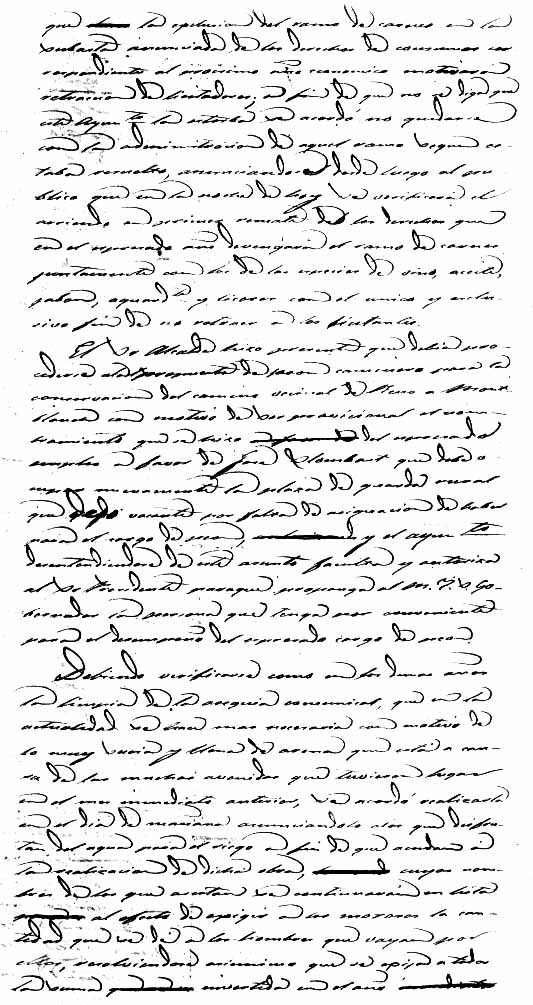 que la esclusion del ramo de carnes en la
subasta anunciada de los derechos de consumos cor
respondiente al próximo año economico motivasen
retraccion de licitadores, a fin de que no se diga que
este Ayunto la estorba se acordó no quedarse
con la administracion de aquel ramo segun es-
taba resuelto, anunciandose desde luego al pu-
blico que en la noche de hoy se verificará el
arriendo en primer remate de los derechos que
en el espresado año devengara el ramo de carnes
juntamente con los de las especies de vino, aceite,
jabon, aguardte y licores con el unico y esclu-
sivo fin de no retraer a los licitantes.
El Sr Alcalde hizo presente que debia pro-
cederse a la propuesta de peon caminero para la
conservacion del camino vecinal de a Mont-
blanch con motivo de ser provisional el nom-
bramiento que se hizo del espresado
empleo a favor de José Llombart que debe o-
cupar nuevamente la plaza de guarda rural
que dejó vacante por falta de asignacion de haber
para el cargo de peon, y el ayunto
desentendiendose de este asunto faculta y autoriza
al Sr Presidente para que proponga al M. I. S. Go-
bernador la persona que tenga por conveniente
para el desempeño del espresado cargo de peon.
Debiendo verificarse como en los demas años
la limpia de la acequia comunal, que en la
actualidad se hace mas necesaria con motivo de
lo muy sucia y llena de arena que está a cau-
sa de las muchas avenidas que tuvieron lugar
en el mes inmediato anterior, se acordó realizarla
en el dia de mañana anunciandolo a los que disfru-
tan del agua para el riego a fin de que acudan a
la realizacion de dicha obra, cuyos nom-
bres de los que asistan se continuarán en lista
al efecto de exigir a los morosos la can-
tidad que se dé a los hombres que vayan por
ellos, resolviendose asimismo que se exija a todos
la suma invertida en el año